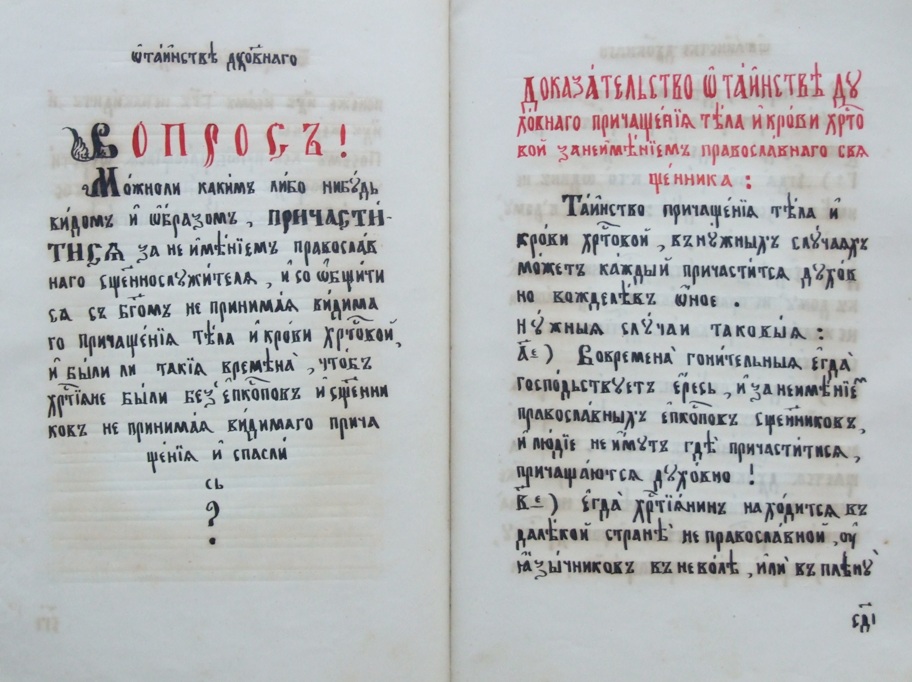 Ѿ та́инствѣ дх҃о́внаго
ВОПРОСЪ!
Мо́жноли каки́мъ ли́бо нибу́дь
ви́домъ и҆ ѻ҆́бразомъ, ПРИЧАСТИ́-
ТИСѦ за не и҆мѣ́нїемъ правосла́в
наго сщ҃еннослужи́телѧ, и҆ со ѻ҆бщи́ти
сѧ съ бг҃омъ не принима́ѧ ви́дима
го причаще́нїѧ тѣ́ла и҆ кро́ви хрⷭ҇то́вой,
и҆ бы́ли ли такі́ѧ времена̀, что́бъ
хрⷭ҇тїѧне бы́ли без̾ є҆пⷭ҇коповъ и҆ сщ҃енни
ковъ не принима́ѧ ви́димаго прича
ще́нїѧ и҆ спасли́
сь
?
Доказа́тельство ѿ та́инствѣ ду
хо́внаго причаще́нїѧ тѣ́ла и҆ кро́ви хрⷭ҇то́
вой занеимѣ́нїемъ правосла́внаго свѧ
ще́нника :
Та́инство причаще́нїѧ тѣ́ла и҆
кро́ви хрⷭ҇то́вой, въ ну́жныхъ слу́чаѧхъ
мо́жетъ ка́ждый причасти́тсѧ духо́в
но вожделѣ́въ ѻ҆́ное .
Ну́жныѧ слу́чаи таковы́ѧ :
А҃е) Вовремена̀ гони́тельныѧ є҆гда̀
госпо́дьствуетъ є҆́ресь, и҆ занеимѣ́нїеⷨ
правосла́вныхъ є҆пⷭ҇коповъ сщ҃е́нниковъ,
и҆ лю́дїе не и҆́мутъ гдѣ̀ причасти́тисѧ,
причаща́ютсѧ духо́вно !
В҃е) Є҆гда̀ хрⷭ҇тїѧ́нинъ нахо́дитсѧ въ
далѣ́кой странѣ̀ не правосла́вной, ѹ҆
ꙗ҆зы́чниковъ въ нево́лѣ, и҆лѝ въ плѣну̀
сд҃і